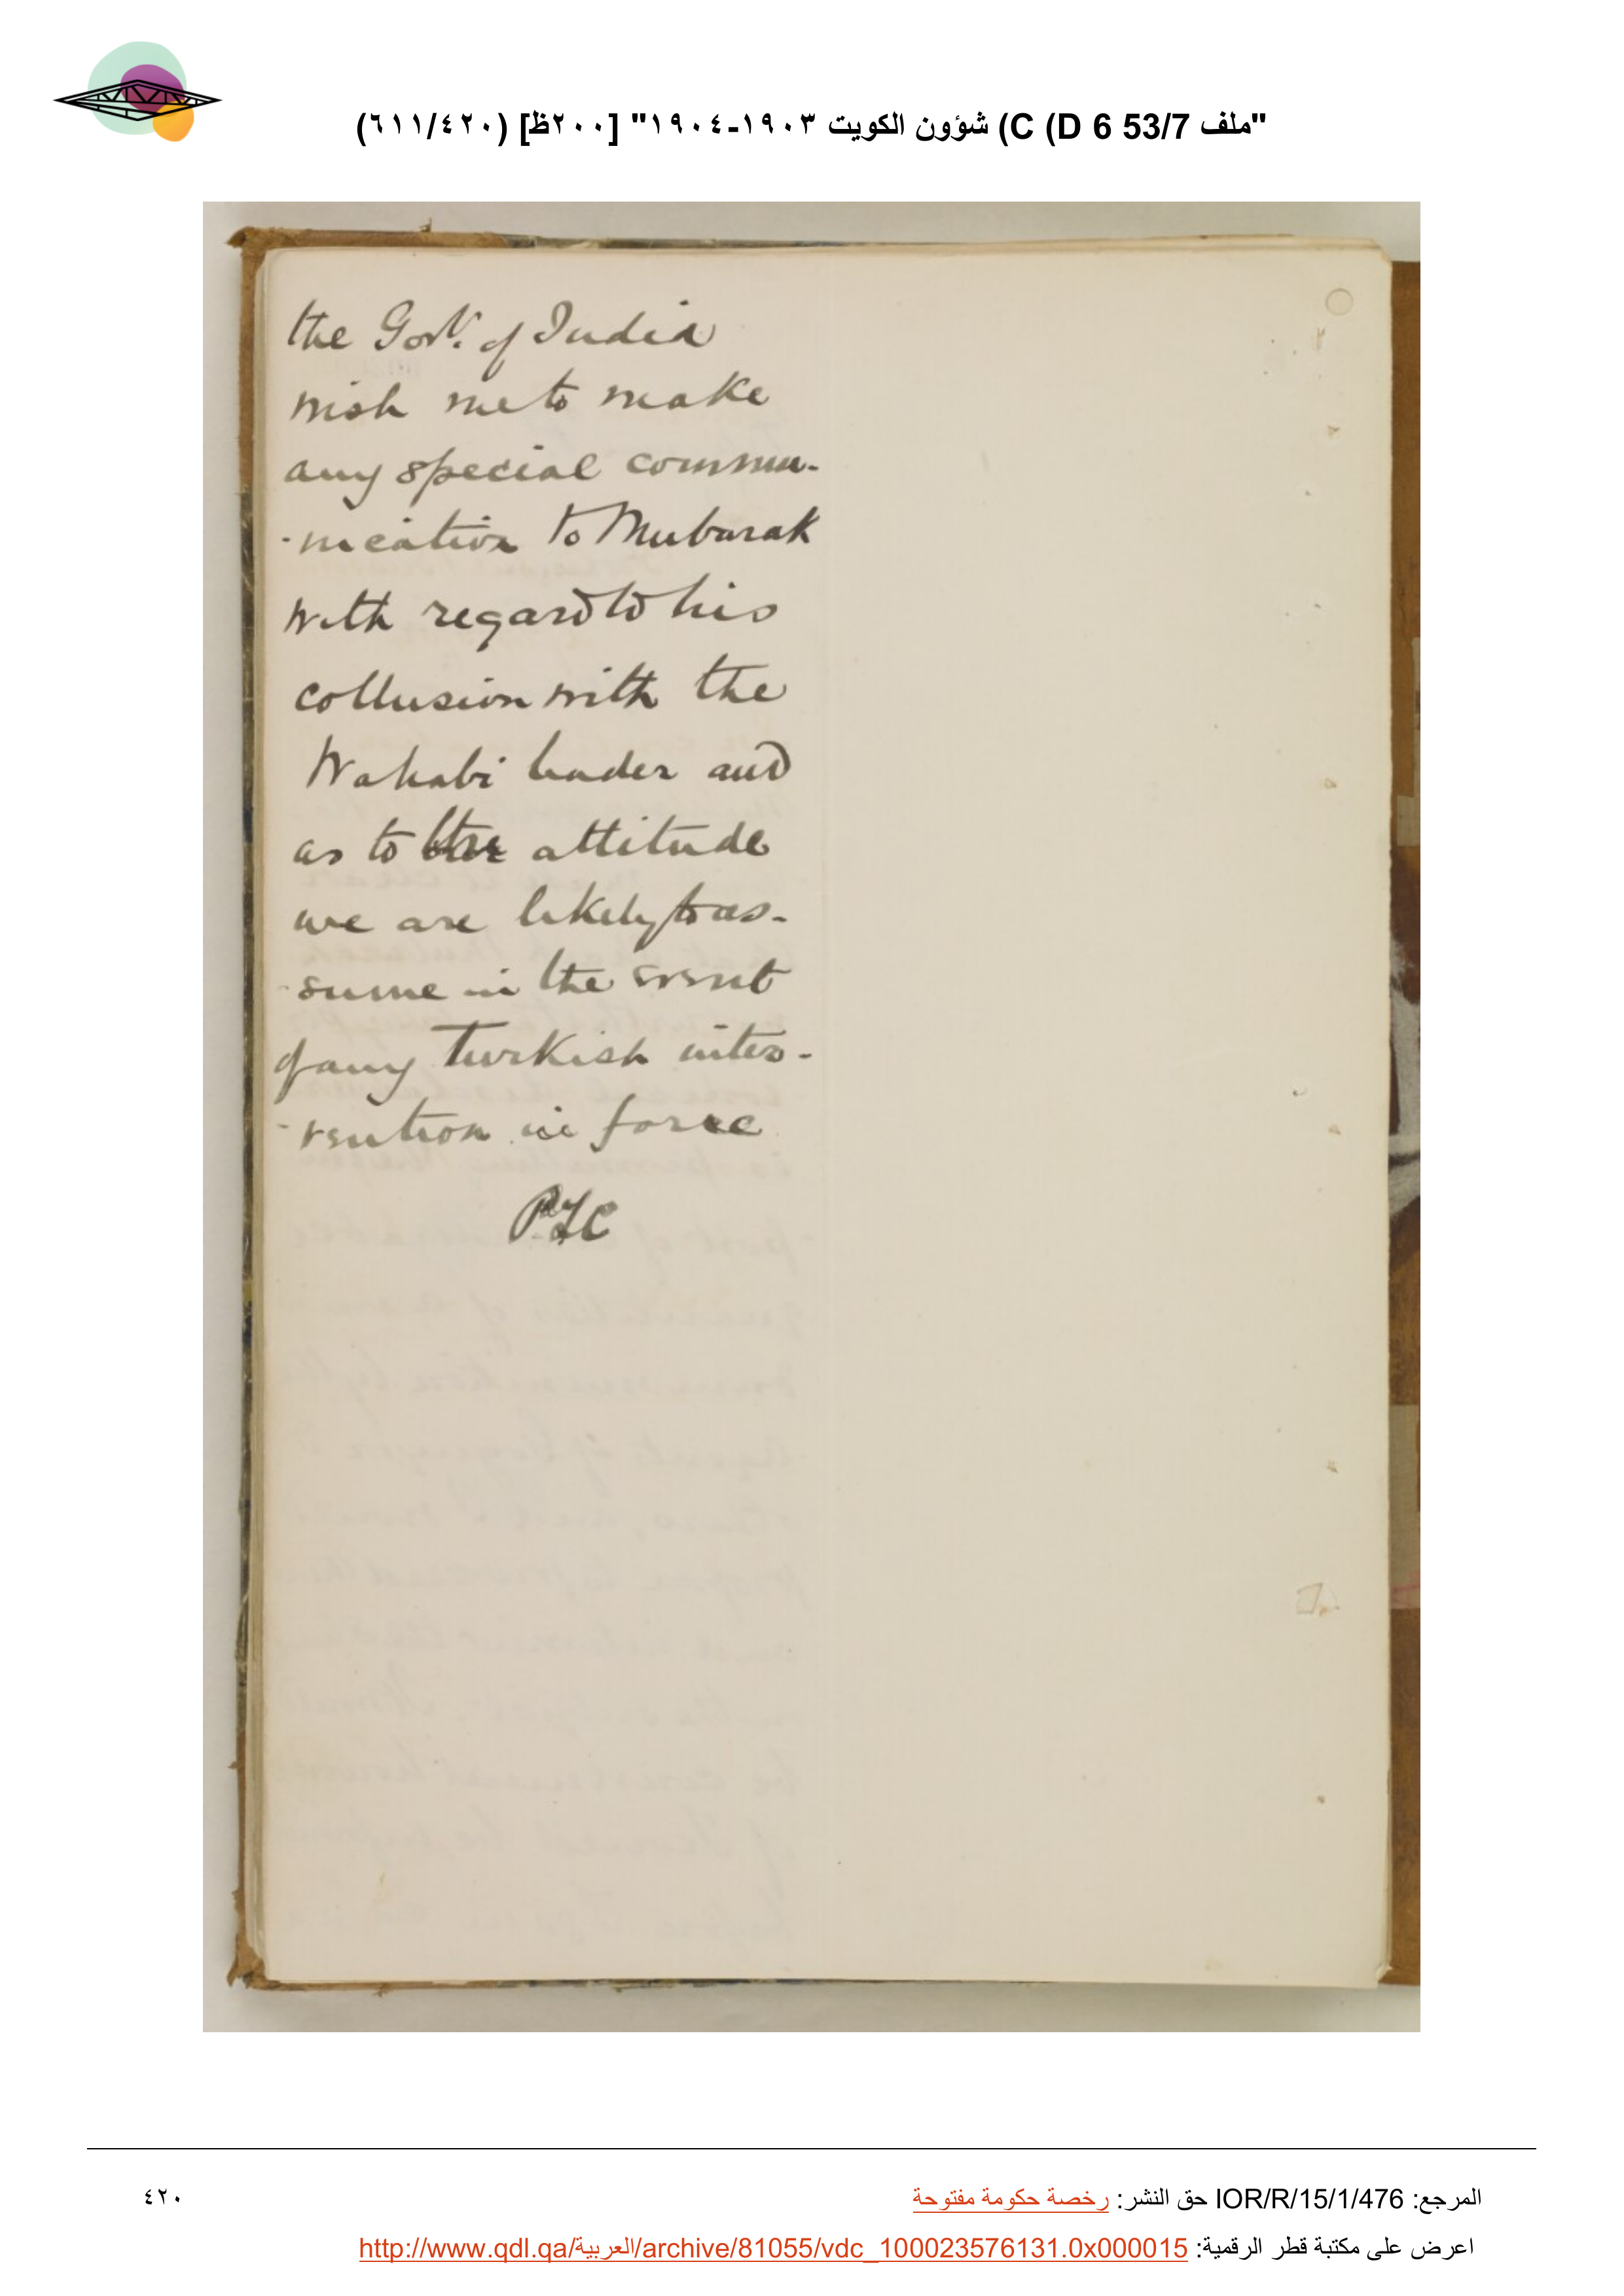 "ملف 53/7 D 6) C) شؤون الكويت ١٩٠٣-١٩٠٤" [٢٠٠ظ] (٦١١/٤٢٠)
the Govt. of India
wish me to make
any special commu-
-nication to Mubarak
with regard to his
collusion with the
Wahabi leader and
as to the attitude
we are likely to as-
-sume in the event
of any Turkish inter-
-vention in force
PZC
المرجع: IOR/R/15/1/476 حق النشر: رخصة حكومة مفتوحة
٤٢٠
اعرض على مكتبة قطر الرقمية: http://www.qdl.qa/العربية/archive/81055/vdc_100023576131.0x000015